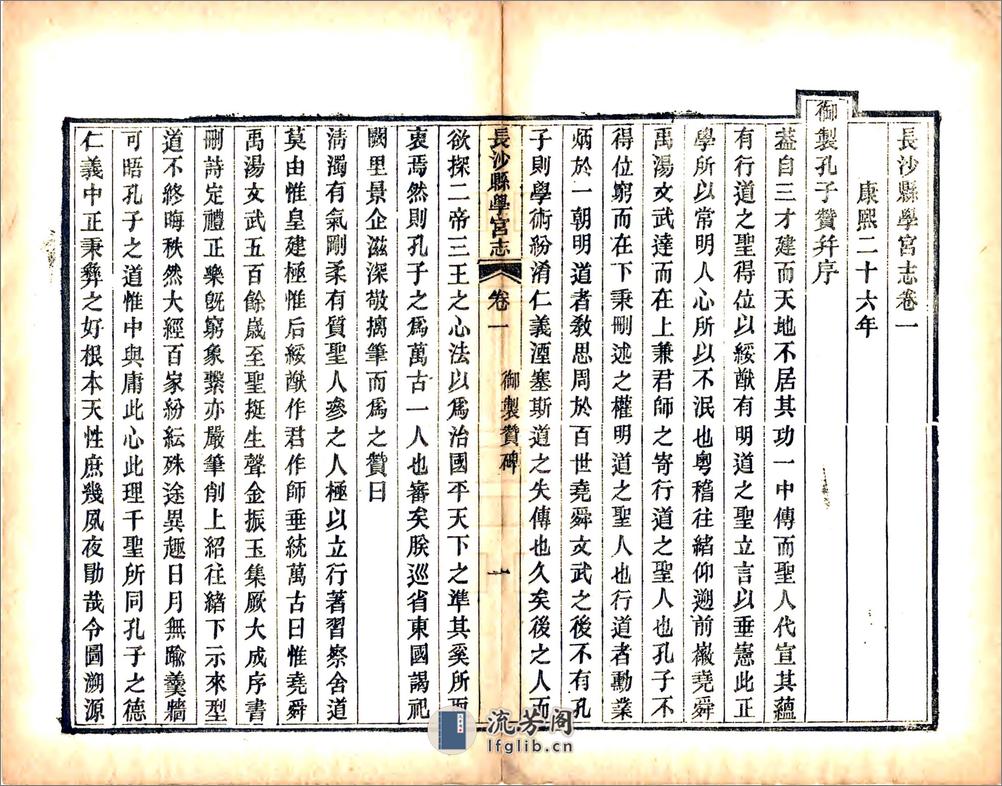 長沙縣學宮志卷一
康熙二十六年
御製孔子贊幷序
蓋自三才建而天地不居其功一中傳而聖人代宣其蘊
有行道之聖得位以綏猷有明道之聖立言以垂憲此正
學所以常明人心所以不泯也粵稽往緒仰遡前徽堯舜
禹湯文武達而在上兼君師之寄行道之聖人也孔子不
得位窮而在下秉刪述之權明道之聖人也行道者勳業
炳於一朝明道者敎思周於百世堯舜文武之後不有孔
子則學術紛淆仁義湮塞斯道之失傳也久矣後之人而
長沙縣學宮志
卷一
御製贊碑
一
欲探二帝三王之心法以爲治國平天下之準其奚所取
衷焉然則孔子之爲萬古一人也審矣朕巡省東國謁祀
闕里景企滋深敬摛筆而爲之贊曰
淸濁有氣剛柔有質聖人參之人極以立行著習察舍道
莫由惟皇建極惟后綏猷作君作師垂統萬古曰惟堯舜
禹湯文武五百餘歲至聖挺生聲金振玉集厥大成序書
刪詩定禮正樂旣窮象繫亦嚴筆削上紹往緒下示來型
道不終晦秩然大經百家紛紜殊途異趣日月無踰羹牆
可晤孔子之道惟中與庸此心此理千聖所同孔子之德
仁義中正秉彝之好根本天性庶幾夙夜勖哉令圖溯源
流芳阁
lfglib.cn